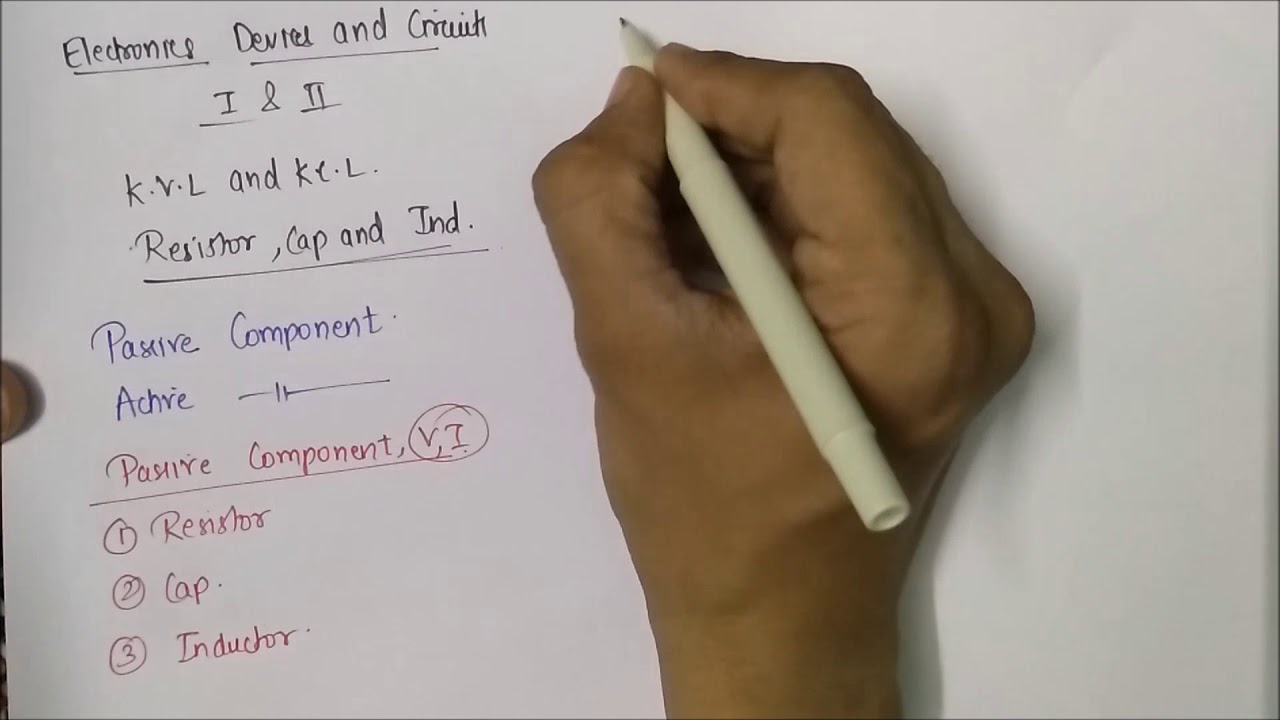 Electronics Devices and Circuits
I & II
K.V.L and KC.L.
Resistor, Cap and Ind.
Passive Component.
Active
Passive Component, V, I
① Resistor
② Cap.
③ Inductor.